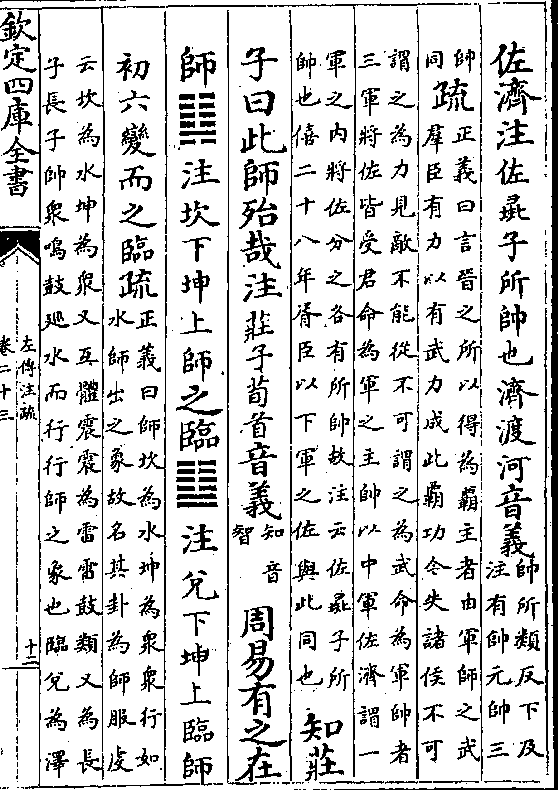 佐濟注佐彘子所帥也濟渡河音義帥所類反下及
注有帥元帥三
帥
同
疏
正義曰言晉之所以得為霸主者由軍師之武
羣臣有力以有武力成此霸功今失諸侯不可
謂之為力見敵不能從不可謂之為武命為軍帥者
三軍將佐皆受君命為軍之主帥以中軍佐濟謂一
軍之內將佐分之各有所帥故注云佐彘子所
帥也僖二十八年胥臣以下軍之佐與此同也
知莊
子曰此師殆哉注莊子荀首音義知音
智
周易有之在
師䷆注坎下坤上師之臨䷒注兌下坤上臨師
初六變而之臨疏正義曰師坎為水坤為衆衆行如
水師出之象故名其卦為師服虔
云坎為水坤為衆又互體震震為雷雷鼓類又為長
子長子帥衆鳴鼓廵水而行行師之象也臨兌為澤
欽定四庫全書
左傳注疏
卷二十三
十二